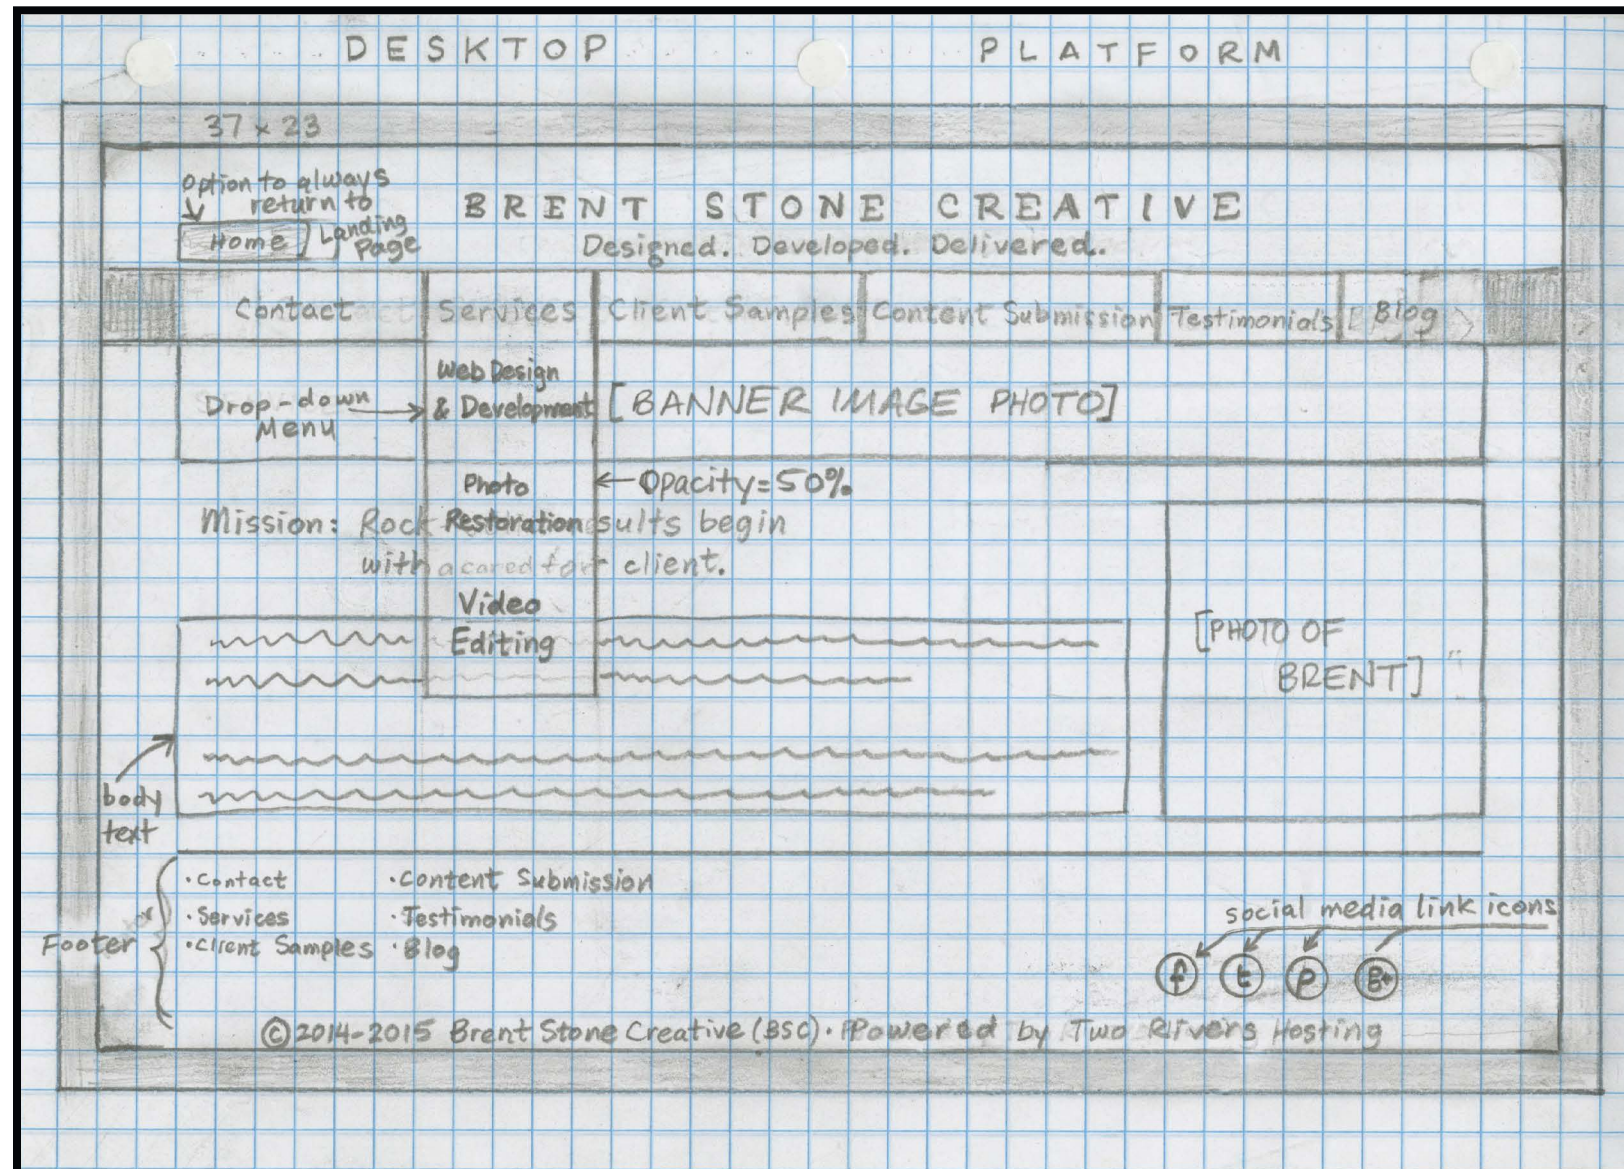 DESKTOP PLATFORM
37 x 23
Option to always
return to
Landing
Page
Home
BRENT STONE CREATIVE
Designed. Developed. Delivered.
Contact Services Client Samples Content Submission Testimonials Blog
Drop-down
Menu
Web Design
& Development
[BANNER IMAGE PHOTO]
Photo
Restoration
←Opacity=50%
Mission: Rock sults begin
with a cared for client.
Video
Editing
[PHOTO OF
BRENT]
body
text
Footer
·Contact ·Content Submission
·Services ·Testimonials
·Client Samples ·Blog
social media link icons
f t p g+
©2014-2015 Brent Stone Creative (BSC). Powered by Two Rivers Hosting